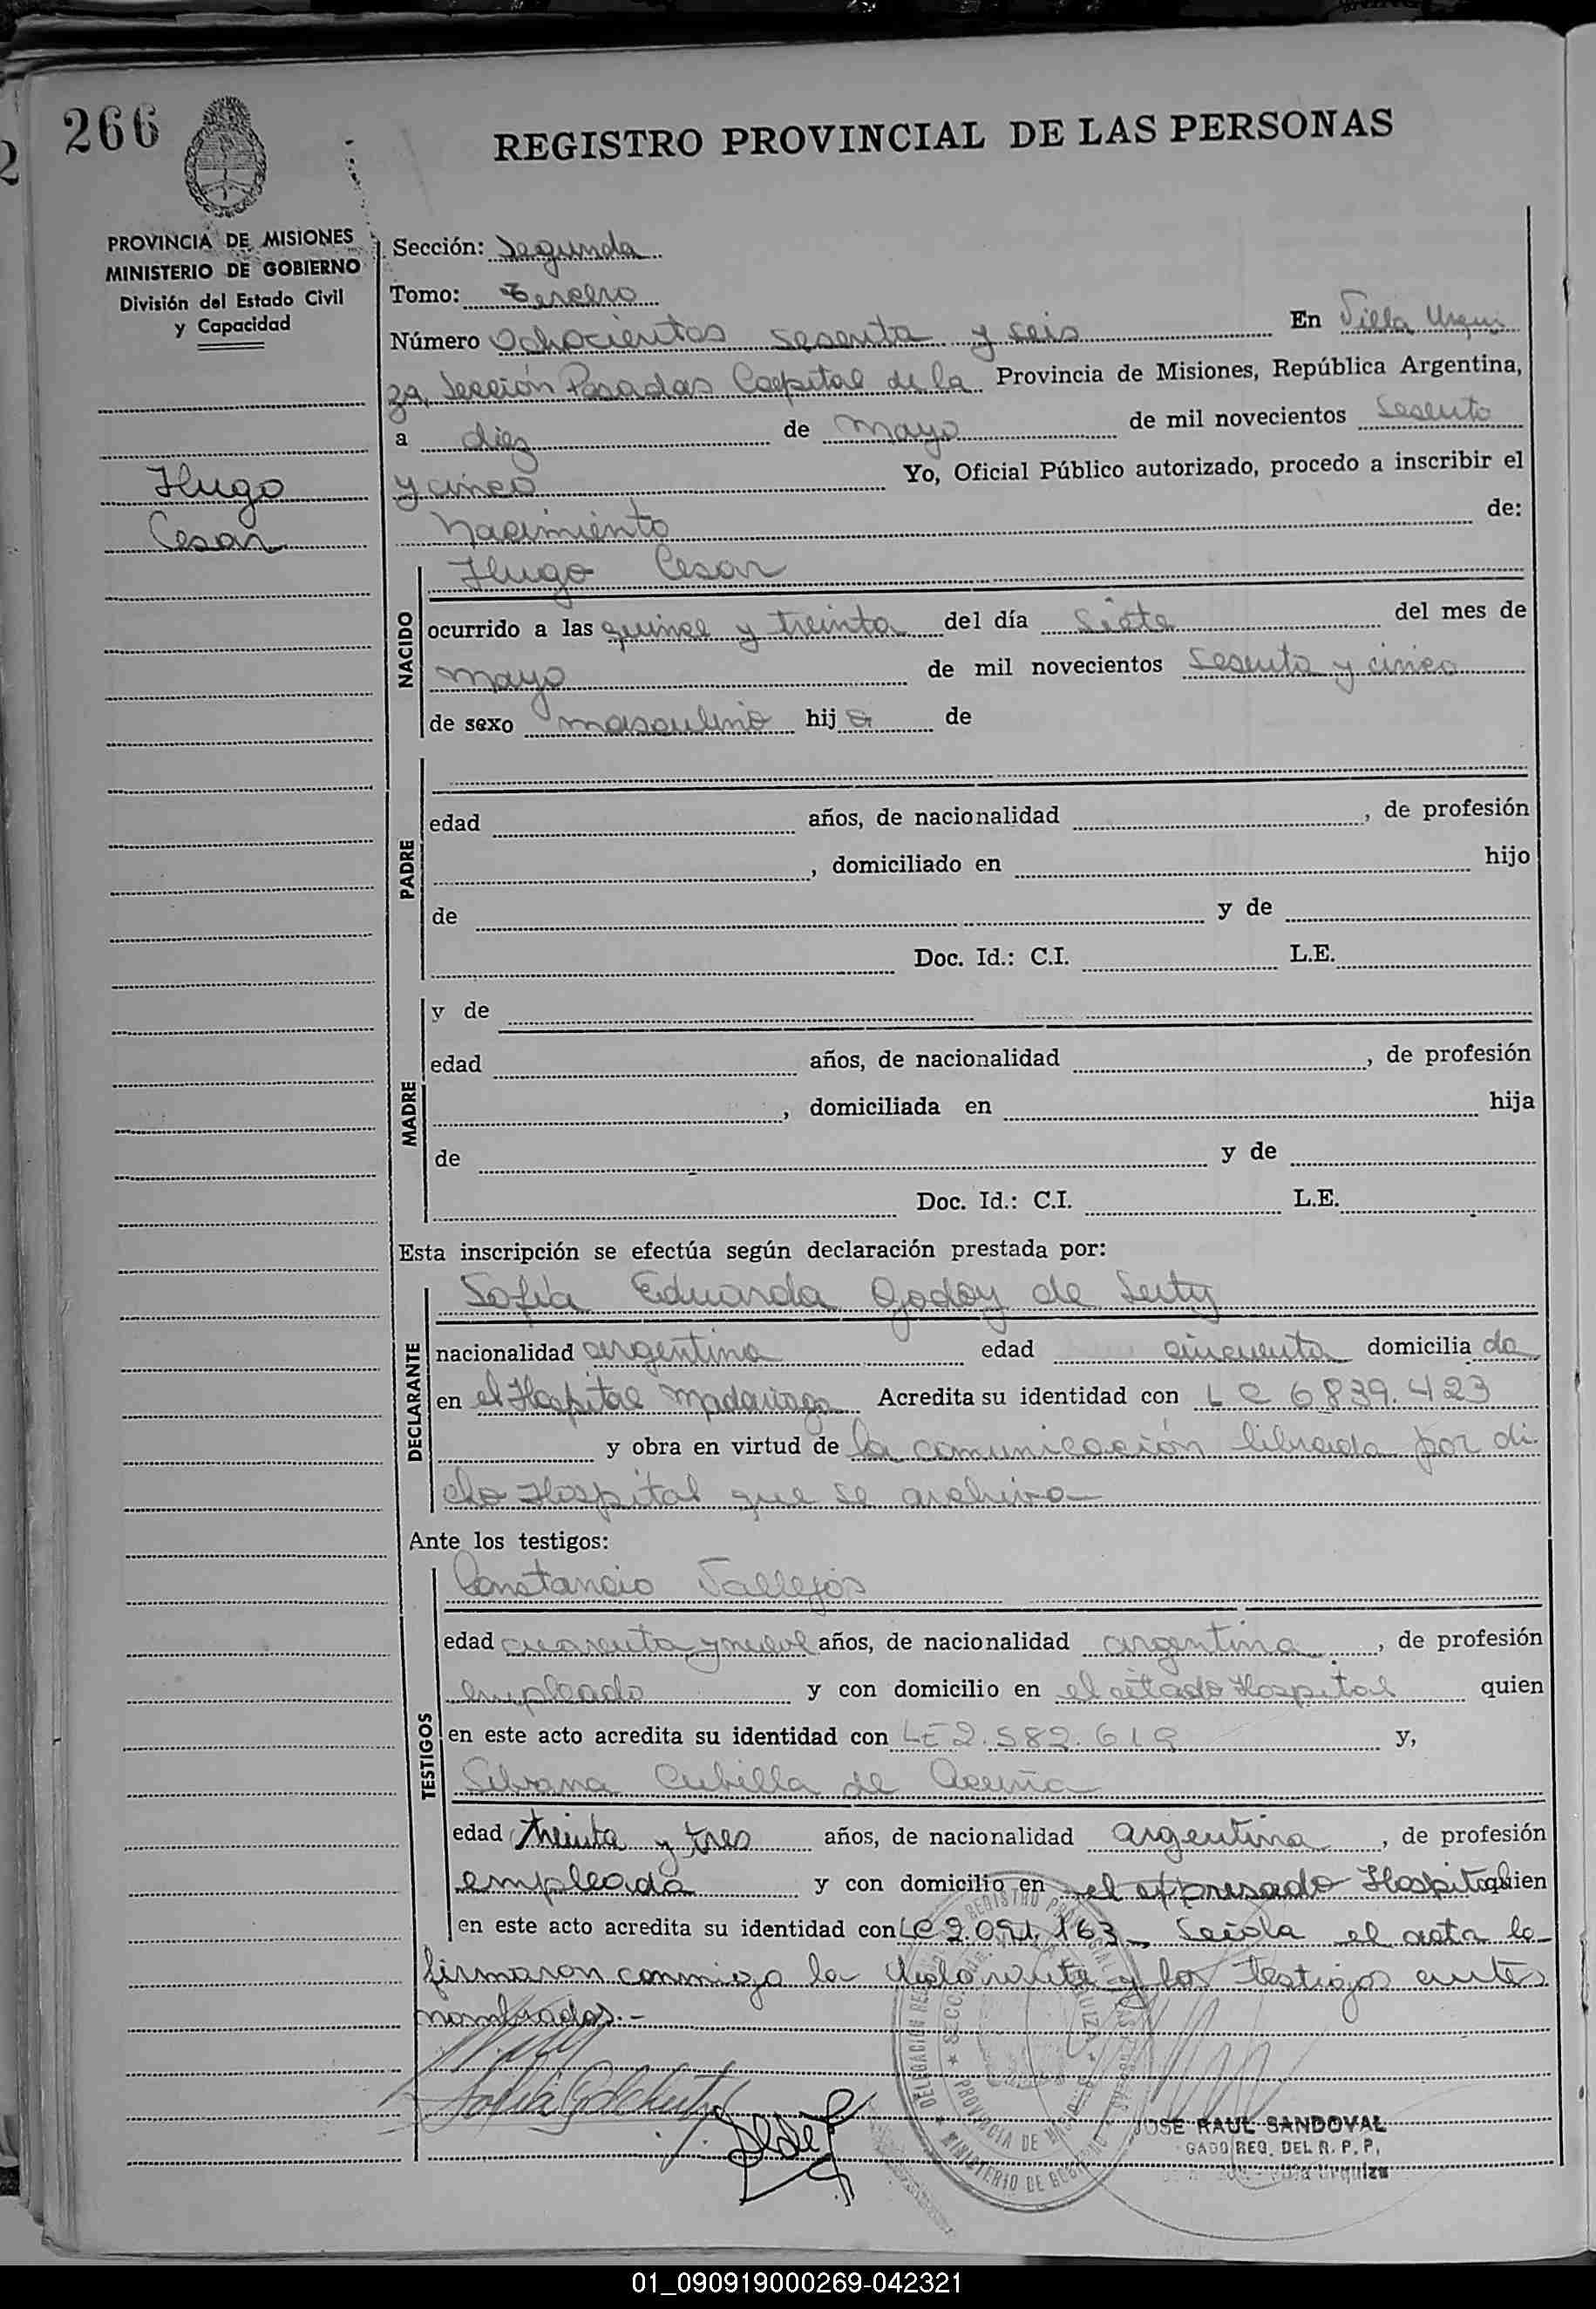 266
REGISTRO PROVINCIAL DE LAS PERSONAS
PROVINCIA DE MISIONES
MINISTERIO DE GOBIERNO
División del Estado Civil
y Capacidad
Hugo
Cesar
Sección: Segunda
Tomo: Tercero
Número Ochocientos sesenta y seis En Villa Urqui
za, Sección Posadas Capital de la Provincia de Misiones, República Argentina,
a diez de mayo de mil novecientos sesenta
y cinco Yo, Oficial Público autorizado, procedo a inscribir el
Nacimiento de:
NACIDO
Hugo Cesar
ocurrido a las quince y treinta del día siete del mes de
mayo de mil novecientos sesenta y cinco
de sexo masculino hij o de
PADRE
edad años, de nacionalidad , de profesión
, domiciliado en hijo
de y de
Doc. Id.: C.I. L.E.
MADRE
y de
edad años, de nacionalidad , de profesión
, domiciliada en hija
de y de
Doc. Id.: C.I. L.E.
Esta inscripción se efectúa según declaración prestada por:
DECLARANTE
Sofía Eduarda Godoy de
nacionalidad argentina edad cincuenta domicilia da
en el Hospital Madariaga Acredita su identidad con L C 6839.423
y obra en virtud de la comunicación librada por di
cho Hospital que se archiva
Ante los testigos:
TESTIGOS
Constancio Vallejos
edad cuarenta y nueve años, de nacionalidad argentina , de profesión
empleado y con domicilio en el citado Hospital quien
en este acto acredita su identidad con LE 2.582.619 y,
Silvana Cubilla de Acuña
edad treinta y tres años, de nacionalidad argentina , de profesión
empleada y con domicilio en el expresado Hospital quien
en este acto acredita su identidad con LC 2.091.163 Leída el acta la
firmaron conmigo la declarante y los testigos antes
nombrados.-
JOSE RAUL SANDOVAL
GADO REG. DEL R. P. P.
Villa Urquiza
01_090919000269-042321